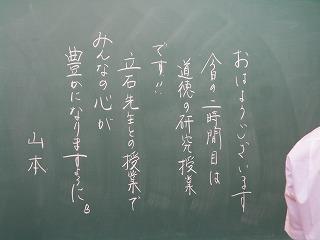 おはようございます
今日の二時間目は
道徳の研究授業
です!!
立石先生との授業で
みんなの心が
豊かになりますように。
山本